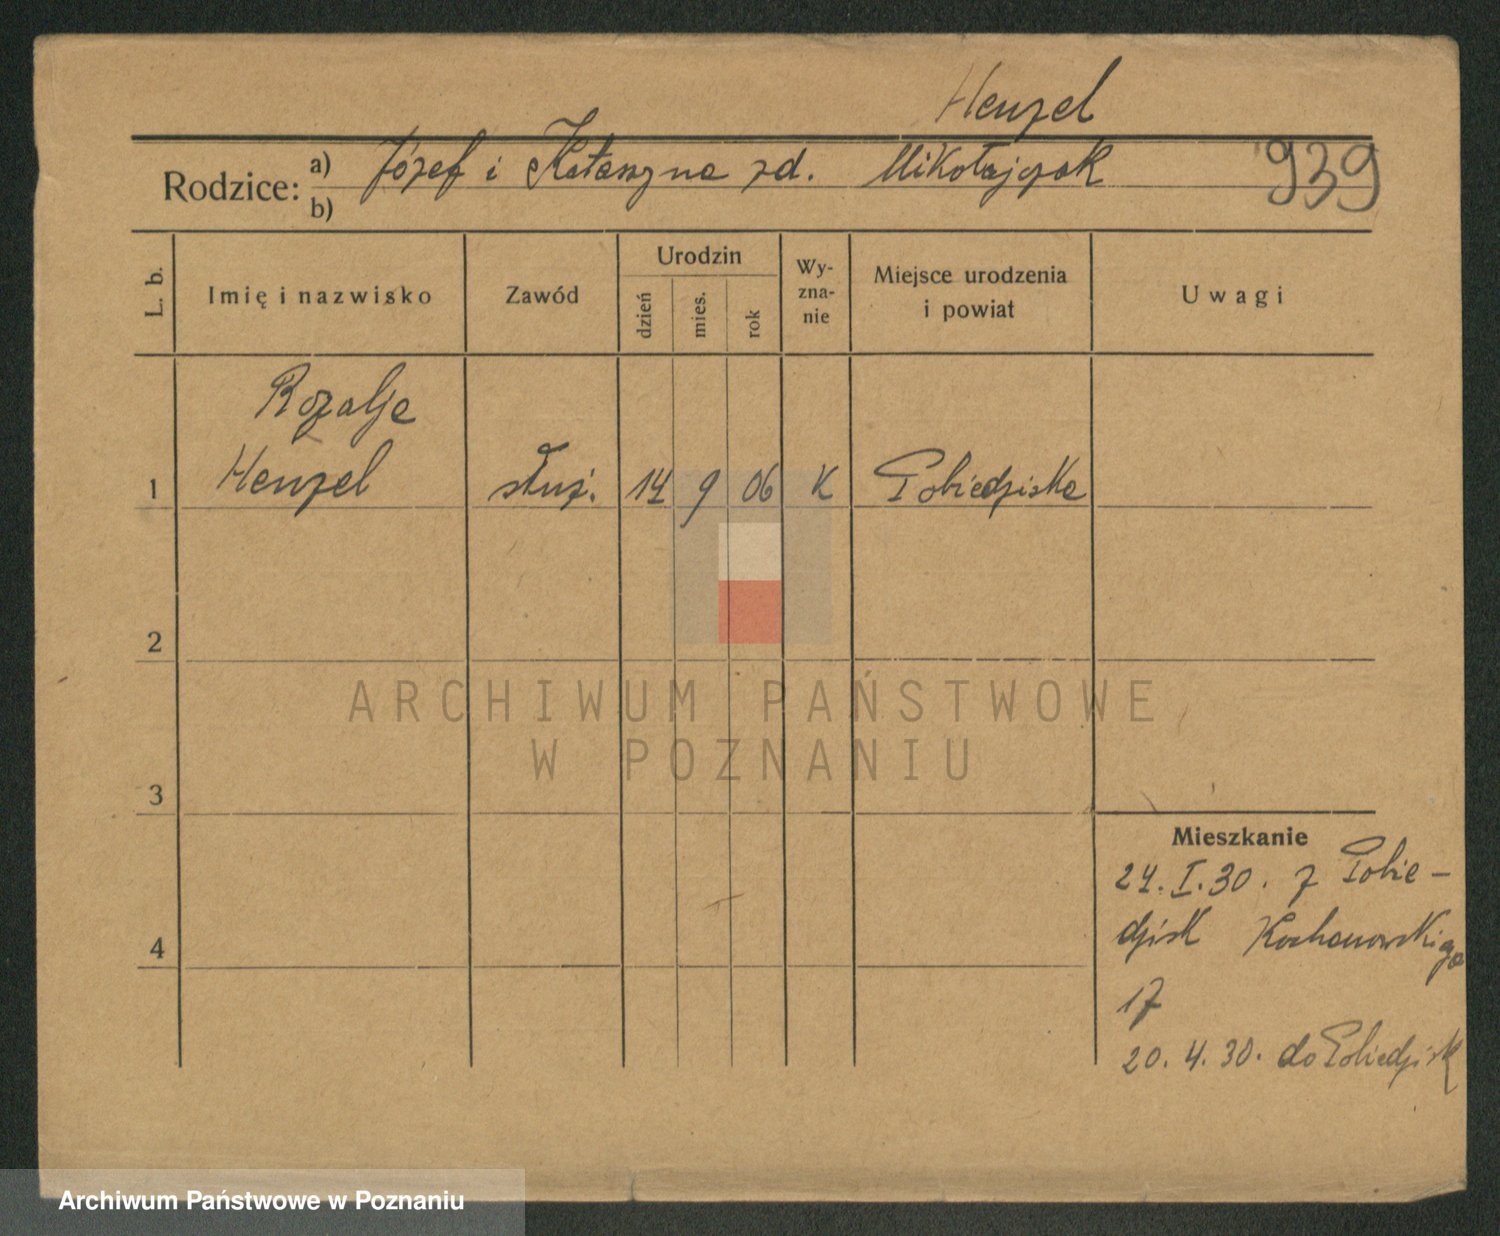 Henzel
Rodzice: a) Józef i Katarzyna zd. Mikołajczak 939
b)
L. b.
Imię i nazwisko
Zawód
Urodzin
dzień
mies.
rok
Wy-
zna-
nie
Miejsce urodzenia
i powiat
Uwagi
Rozalja
1 Henzel służ. 14 9 06 K Pobiedziska
2
ARCHIWUM PAŃSTWOWE
W POZNANIU
3
Mieszkanie
24. I. 30. z Pobie-
dzisk Kochanowskiego
4
17
20. 4. 30. do Pobiedzisk
Archiwum Państwowe w Poznaniu